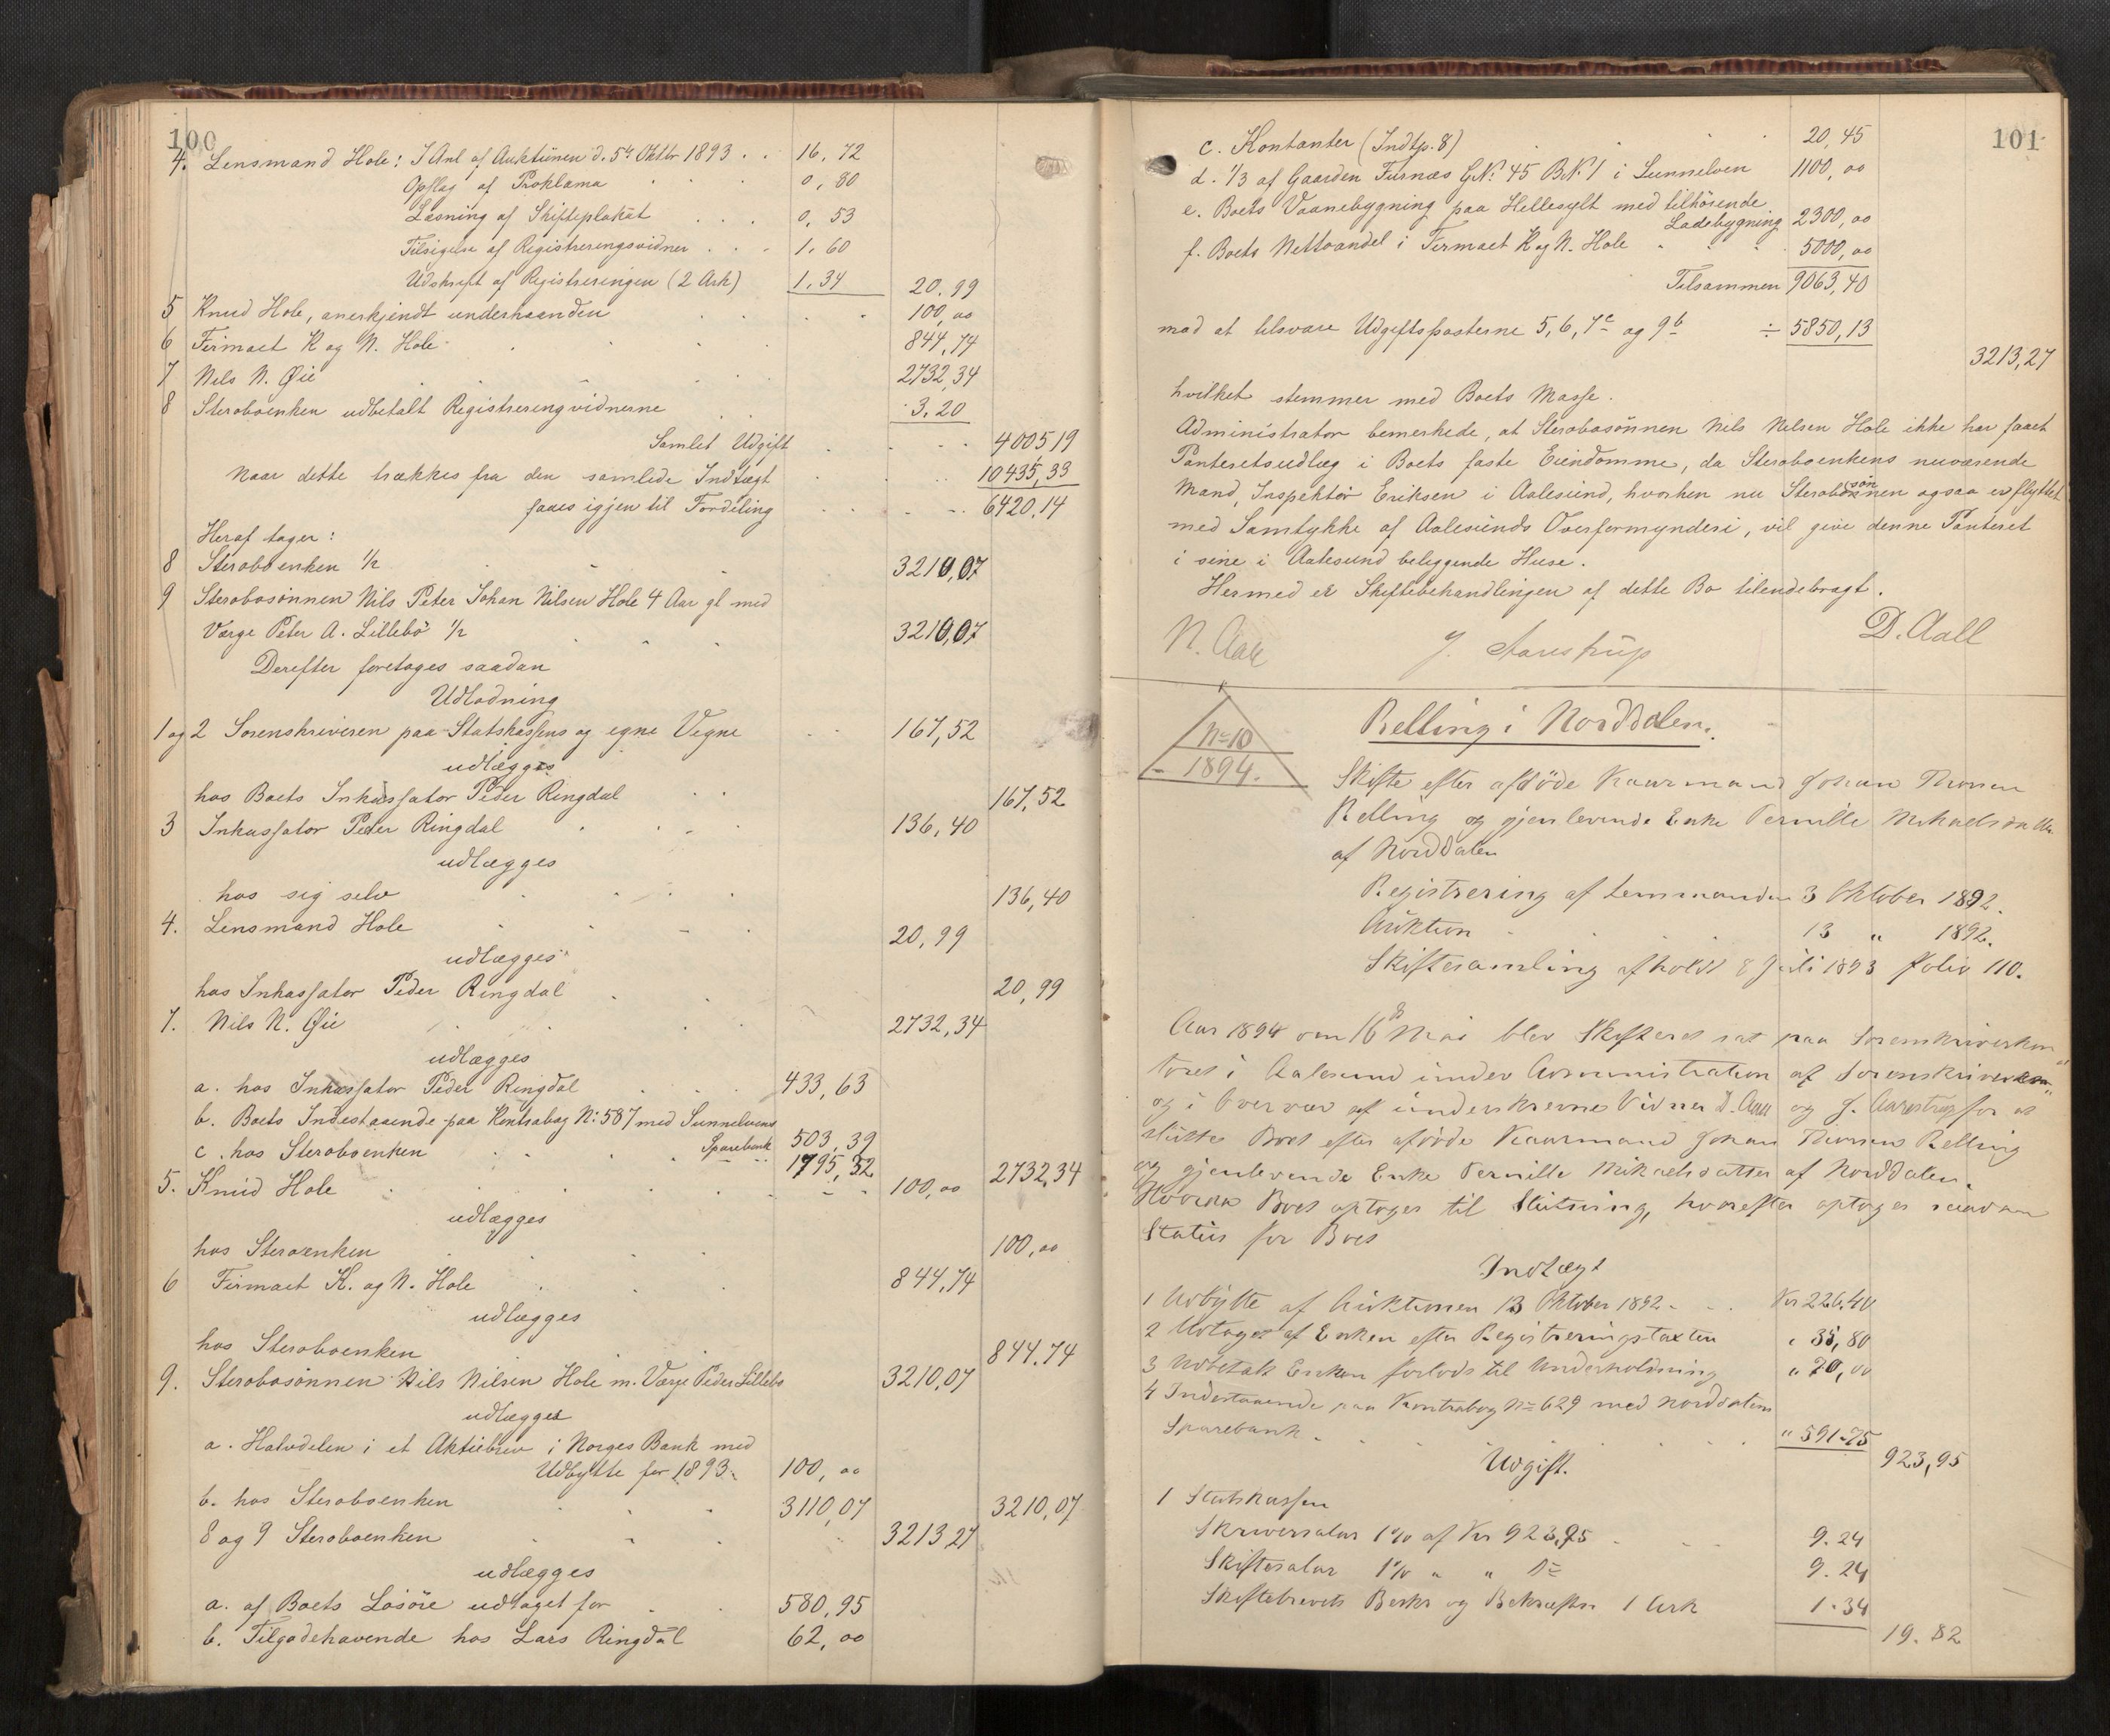 100
4. Lensmand Hole: I Anl af Auktionen d. 5te Oktbr 1893 . . 16,72
Opslag af Proklama 0,80
Læsning af Skifteplakat 0,53
Tilsigelse af Registreringsvidner 1,60
Udskrift af Registreringen (2 Ark) 1,34 20,99
5 Knud Hole, anerkjendt underhaanden 100,00
6 Firmaet K og N. Hole 844,74
7 Nils N. Øie 2732,34
8 Sterboenken udbetalt Registreringvidnerne 3,20
Samlet Udgift 4005,19
Naar dette trækkes fra den samlede Indtægt 10435,33
faaes igjen til Fordeling 6420,14
Heraf tager:
8 Sterboenken 1/2 3210,07
9 Sterbosønnen Nils Peter Johan Nilsen Hole 4 Aar gl med
Værge Peter A. Lillebö 1/2 3210,07
Derefter foretoges saadan
Udlodning
1 og 2 Sorenskriveren paa Statskassens og egne Vegne 167,52
udlægges
hos Boets Inkassator Peder Ringdal 167,52
3 Inkassator Peder Ringdal 136,40
udlægges
hos sig selv 136,40
4. Lensmand Hole 20,99
udlægges
hos Inkassator Peder Ringdal 20,99
7. Nils N. Øie 2732,34
udlægges
a. hos Inkassator Peder Ringdal 433,63
b. Boets Indestaaende paa Kontrabog No: 587 med Sunnelvens
Sparebank 503,39
c. hos Sterboenken 1795,32 2732,34
5. Knud Hole 100,00
udlægges
hos Sterboenken 100,00
6 Firmaet K. og N. Hole 844,74
udlægges
hos Sterboenken 844,74
9. Sterbosønnen Nils Nilsen Hole m. Værge Peder Lillebö 3210,07
udlægges
a. Halvdelen i et Aktiebrev i Norges Bank med
Udbytte for 1893. 100,00
b. hos Sterboenken 3110,07 3210,07
8 og 9 Sterboenken 3213,27
udlægges
a. af Boets Løsøre udtaget for 580,95
b. Tilgodehavende hos Lars Ringdal 62,00
101
c. Kontanter (Indtp. 8) 20,45
d. 1/3 af Gaarden Furnæs G.No. 45 B.No. 1 i Sunnelven 1100,00
e. Boets Vaanebygning paa Hellesylt med tilhörende
Ladebygning 2300,00
f. Boets Nettoandel i Firmaet K og N. Hole 5000,00
Tilsammen 9063,40
mod at tilsvare Udgiftsposterne 5, 6, 7c og 9b ÷ 5850,13
3213,27
hvilket stemmer med Boets Masse.
Administrator bemerkede, at Sterbosønnen Nils Nilsen Hole ikke har faaet
Panteretsudlæg i Boets faste Eiendomme, da Sterboenkens nuværende
Mand, Inspektör Eriksen i Aalesund, hvorhen nu Sterbosønnen ogsaa er flyttet
med Samtykke af Aalesunds Overformynderi, vil give denne Panteret
i sine i Aalesund beliggende Huse.
Hermed er Skiftebehandlingen af dette Bo tilendebragt.
D. Aall
N. Aall J. Aarestrup
No 10
1894.
Relling i Norddalen.
Skifte efter afdöde Kaarmand Johan Thorsen
Relling og gjenlevende Enke Pernille Mikaelsdatter
af Norddalen
Registrering af Lensmanden 3 Oktober 1892.
Auktion 13 " 1892.
Skiftesamling afholdt 8 Juli 1893 folio 110.
Aar 1894 den 16de Mai blev Skifteret sat paa Sorenskriverkon
toret i Aalesund under Administration af Sorenskriveren
og i Overvær af underskrevne Vidner D. Aall og J. Aarestrup for at
slutte Boet efter afdöde Kaarmand Johan Thorsen Relling
og gjenlevende Enke Pernille Mikaelsdatter af Norddalen.
Boet optoges til Slutning, hvorefter optoges saadan
Status for Boet
Indtægt
1 Udbytte af Auktionen 13 Oktober 1892 Kr 226,40
2 Udtaget af Enken efter Registreringstaxten " 35,80
3 Udbetalt Enken forlods til Underholdning " 70,00
4 Indestaaende paa Kontrabog No 629 med Norddalens
Sparebank " 591.75
923,95
Udgift.
1 Statskassen
Skriversalær 1% af Kr 923,95 9.24
Skiftesalær 1% " " Do 9.24
Skiftebrevets Beskr og Bekræftn 1 Ark 1.34
19.82